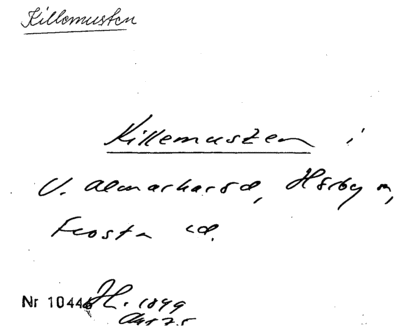 Killemusten
Killemuszen i
V. Almarhared, Hörby n,
Frosta hd.
Nr 10446 H. 1849